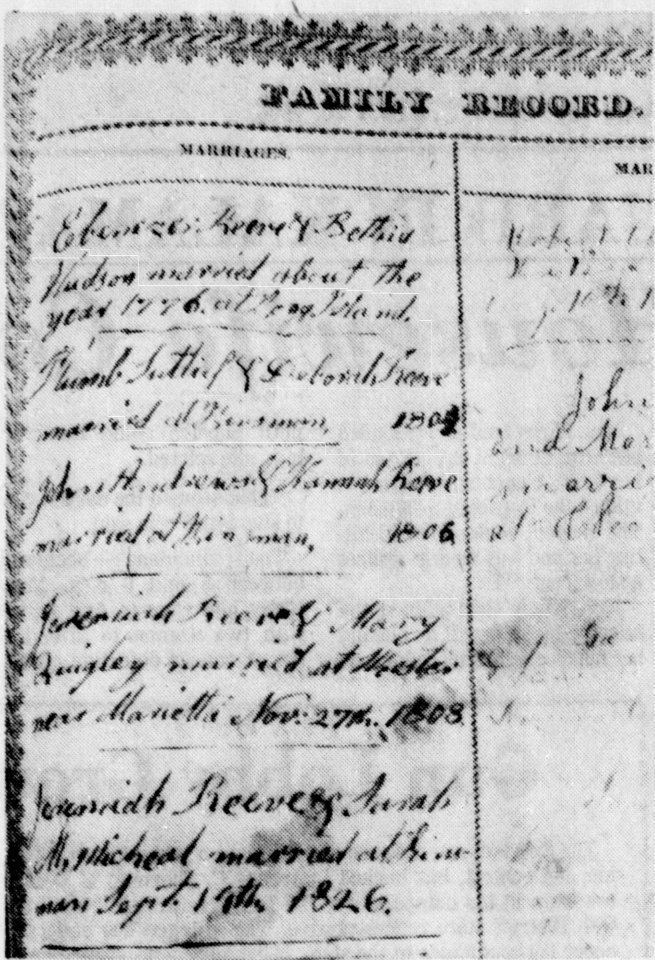 FAMILY RECORD.
MARRIAGES.
MAR
Ebenezer Reeve & Bethia
Hudson married about the
year 1776. at Long Island.
Plumb Sutlief & Deborah Reeve
married at Kinsman, 1804
John Andrews & Hannah Reeve
married at Kinsman, 1806
Jeremiah Reeve & Mary
Quigley married at
near Marietta Nov: 27th. 1808
Jeremiah Reeve & Sarah
McMicheal married at Kins
man Sept. 19th 1826.
John
and Mar
marrie
at